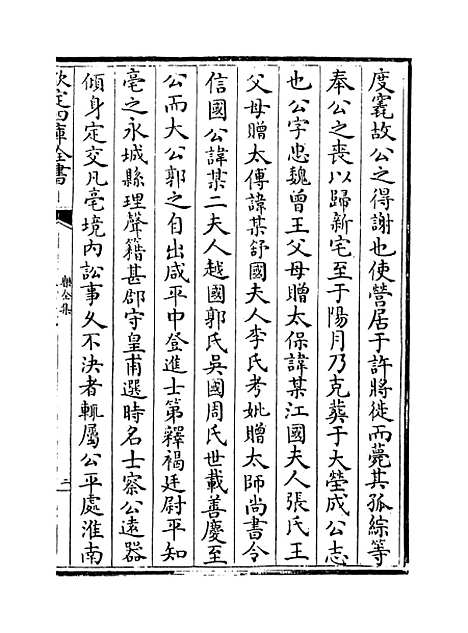 度窀故公之得謝也使營居于許將徙而薨其孤綜等
奉公之喪以歸新宅至于陽月乃克葬于大塋成公志
也公字忠魏曾王父母贈太保諱某江國夫人張氏王
父母贈太傅諱某舒國夫人李氏考妣贈太師尚書令
信國公諱某二夫人越國郭氏吳國周氏世載善慶至
公而大公郭之自出咸平中登進士第釋褐廷尉平知
亳之永城縣理聲籍甚郡守皇甫選時名士察公遠器
傾身定交凡亳境內訟事久不決者輒屬公平處淮南
欽定四庫全書
樂全集
二